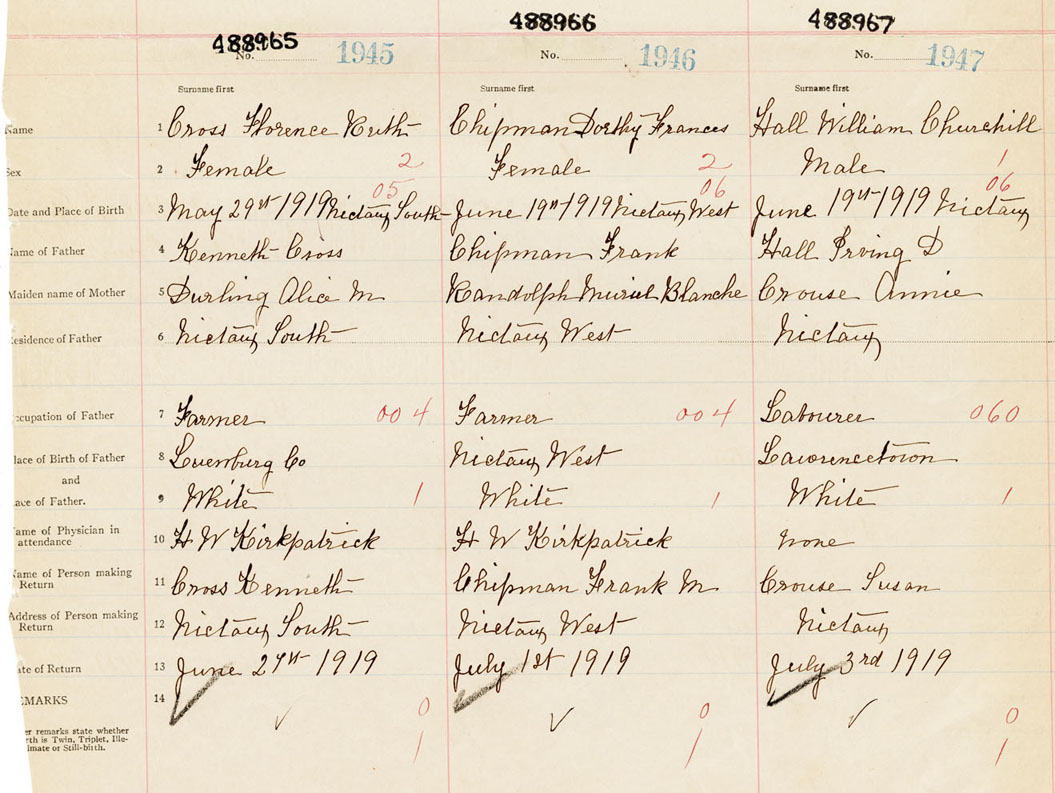 488965 488966 488967
No. 1945 No. 1946 No. 1947
Surname first Surname first Surname first
Name 1 Cross Florence Ruth Chipman Dorthy Frances Hall William Churchill
Sex 2 Female 2 Female 2 Male 1
05 06 06
Date and Place of Birth 3 May 29th 1919 Nictaux South June 19th 1919 Nictaux West June 19th 1919 Nictaux
Name of Father 4 Kenneth Cross Chipman Frank Hall Irving D
Maiden name of Mother 5 Durling Alice M Randolph Muriel Blanche Crouse Annie
Residence of Father 6 Nictaux South Nictaux West Nictaux
Occupation of Father 7 Farmer 004 Farmer 004 Labourer 060
Place of Birth of Father 8 Luenburg Co Nictaux West Lawrencetown
and
Race of Father. 9 White 1 White 1 White 1
Name of Physician in
attendance 10 H W Kirkpatrick H W Kirkpatrick None
Name of Person making
Return 11 Cross Kenneth Chipman Frank M Crouse Susan
Address of Person making
Return 12 Nictaux South Nictaux West Nictaux
Date of Return 13 June 27th 1919 July 1st 1919 July 3rd 1919
REMARKS 14
0 0 0
er remarks state whether
rth is Twin, Triplet, Ille-
imate or Still-birth.
1 1 1